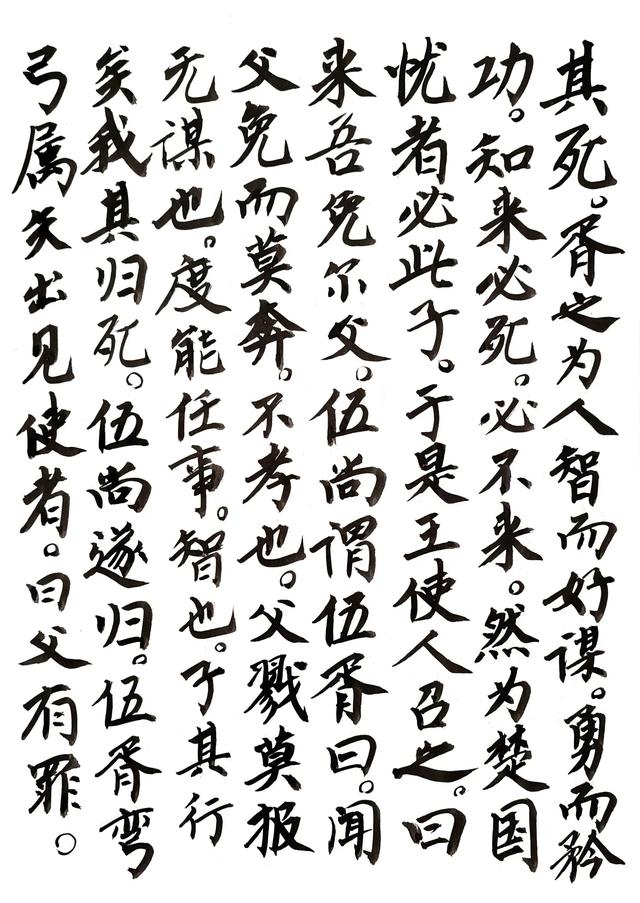 其死。胥之为人智而好谋。勇而矜
功。知来必死。必不来。然为楚国
忧者必此子。于是王使人召之。曰
来吾免尔父。伍尚谓伍胥曰。闻
父免而莫奔。不孝也。父戮莫报
无谋也。度能任事。智也。子其行
矣我其归死。伍尚遂归。伍胥弯
弓属矢出见使者。曰父有罪。